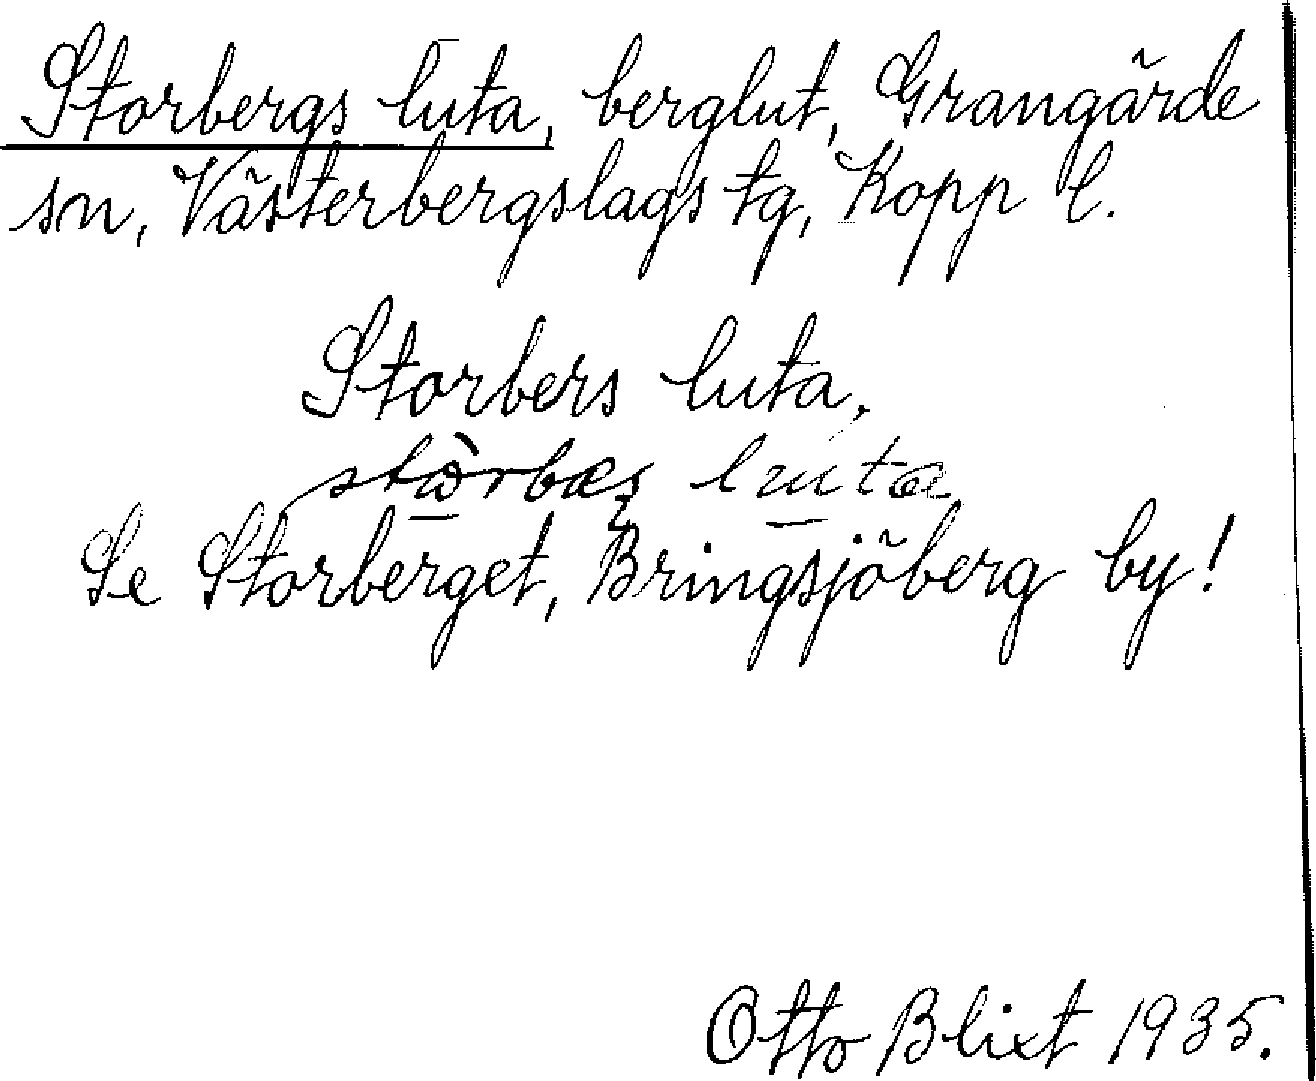 Storbergs luta, berglut, Grangärde
sn, Västerbergslags tg, Kopp l.
Storbers luta,
Se Storberget, Bringsjöberg by!
Otto Blixt 1935.